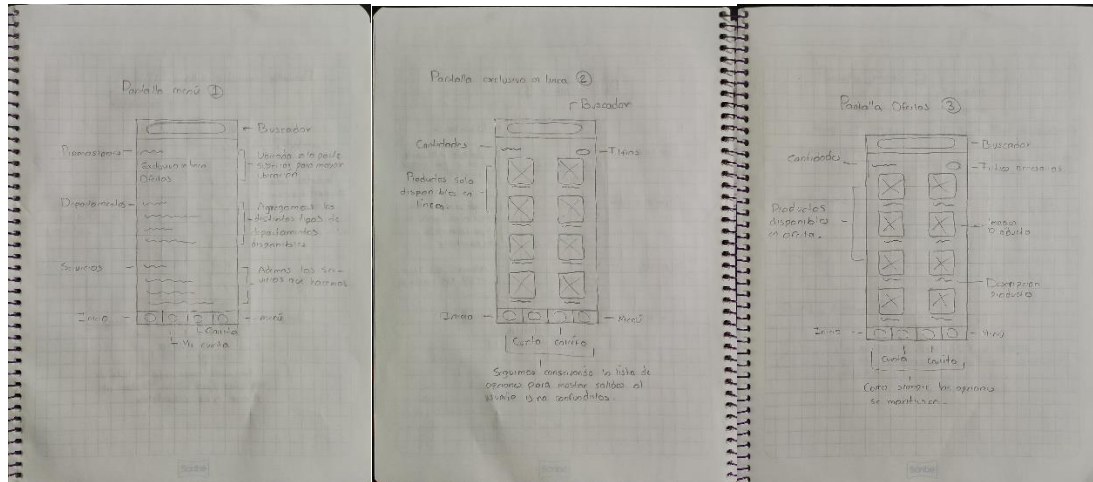 Pantalla menú 1
Buscador
Promociones
Exclusivo en linea
Ofertas
Departamentos
Agregamos los
distintos tipos de
departamentos
disponibles
Servicios
Ademas los ser-
vicios que hacemos
Inicio
Carrito
menú
Mi cuenta
Pantalla exclusivo en linea 2
Buscador
Cantidades
Filtros
Productos solo
disponibles en
linea.
Inicio
Menú
Cuenta carrito
Seguimos conservando la lista de
opciones para mostrar salidas al
usuario y no confundirlos.
Pantalla Ofertas 3
Buscador
Cantidades
Productos
disponibles
en oferta.
producto
Descripcion
producto
Inicio
Menú
Cuenta carrito
Como siempre las opciones
se mantienen.
Scribe